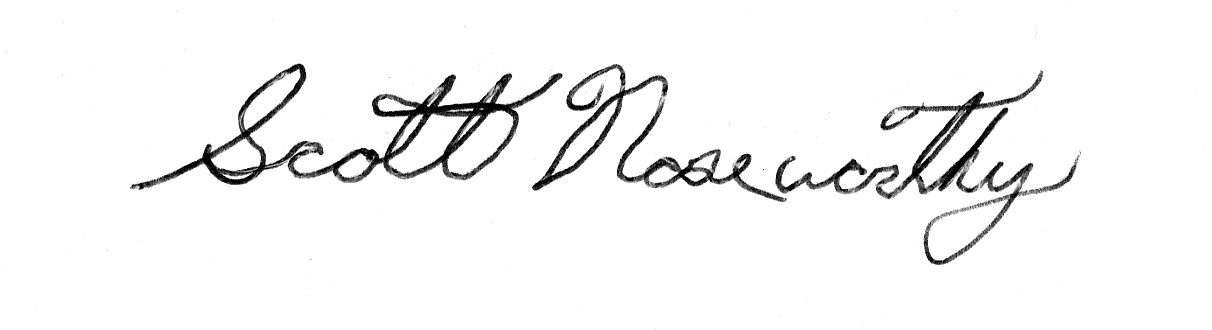 Scott Noseworthy